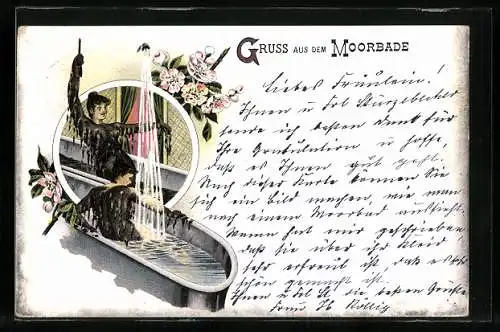 GRUSS AUS DEM MOORBADE
Liebes Fräulein!
Ihnen u. Frl.
sende ich besten Dank für
Ihre Gratulation u. hoffe,
daß es Ihnen gut geht.
Nach dieser Karte können Sie
sich ein Bild machen, wie man
nach einem Moorbad aussieht.
hat mir geschrieben
daß sie über ihr Kleid
sehr erfreut ist, daß es so
schön gemacht ist.
Ihnen u. Frl. die besten Grüße